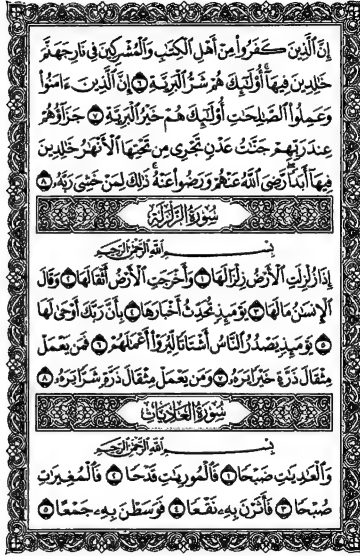 إِنَّ ٱلَّذِينَ كَفَرُوا۟ مِنْ أَهْلِ ٱلْكِتَٰبِ وَٱلْمُشْرِكِينَ فِى نَارِ جَهَنَّمَ
خَٰلِدِينَ فِيهَآ أُو۟لَٰٓئِكَ هُمْ شَرُّ ٱلْبَرِيَّةِ ٦ إِنَّ ٱلَّذِينَ ءَامَنُوا۟
وَعَمِلُوا۟ ٱلصَّٰلِحَٰتِ أُو۟لَٰٓئِكَ هُمْ خَيْرُ ٱلْبَرِيَّةِ ٧ جَزَآؤُهُمْ
عِندَ رَبِّهِمْ جَنَّٰتُ عَدْنٍ تَجْرِى مِن تَحْتِهَا ٱلْأَنْهَٰرُ خَٰلِدِينَ
فِيهَآ أَبَدًا ۖ رَّضِىَ ٱللَّهُ عَنْهُمْ وَرَضُوا۟ عَنْهُ ۚ ذَٰلِكَ لِمَنْ خَشِىَ رَبَّهُۥ ٨
سُورَةُ الزَّلْزَلَةِ
بِسْمِ ٱللَّهِ ٱلرَّحْمَٰنِ ٱلرَّحِيمِ
إِذَا زُلْزِلَتِ ٱلْأَرْضُ زِلْزَالَهَا ١ وَأَخْرَجَتِ ٱلْأَرْضُ أَثْقَالَهَا ٢ وَقَالَ
ٱلْإِنسَٰنُ مَا لَهَا ٣ يَوْمَئِذٍ تُحَدِّثُ أَخْبَارَهَا ٤ بِأَنَّ رَبَّكَ أَوْحَىٰ لَهَا
٥ يَوْمَئِذٍ يَصْدُرُ ٱلنَّاسُ أَشْتَاتًا لِّيُرَوْا۟ أَعْمَٰلَهُمْ ٦ فَمَن يَعْمَلْ
مِثْقَالَ ذَرَّةٍ خَيْرًا يَرَهُۥ ٧ وَمَن يَعْمَلْ مِثْقَالَ ذَرَّةٍ شَرًّا يَرَهُۥ ٨
سُورَةُ العَادِيَاتِ
بِسْمِ ٱللَّهِ ٱلرَّحْمَٰنِ ٱلرَّحِيمِ
وَٱلْعَٰدِيَٰتِ ضَبْحًا ١ فَٱلْمُورِيَٰتِ قَدْحًا ٢ فَٱلْمُغِيرَٰتِ
صُبْحًا ٣ فَأَثَرْنَ بِهِۦ نَقْعًا ٤ فَوَسَطْنَ بِهِۦ جَمْعًا ٥